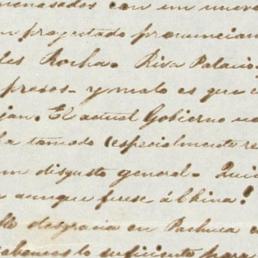 menasados con un nuevo
un proyectado pronuncian
les Rocha. Riva Palacio,
presos - y malo es que
El actual Gobierno
ha tomado (especialmente re
un disgusto general.
aunque fuese á China!
desgracia en Pachuca
lo suficiente para